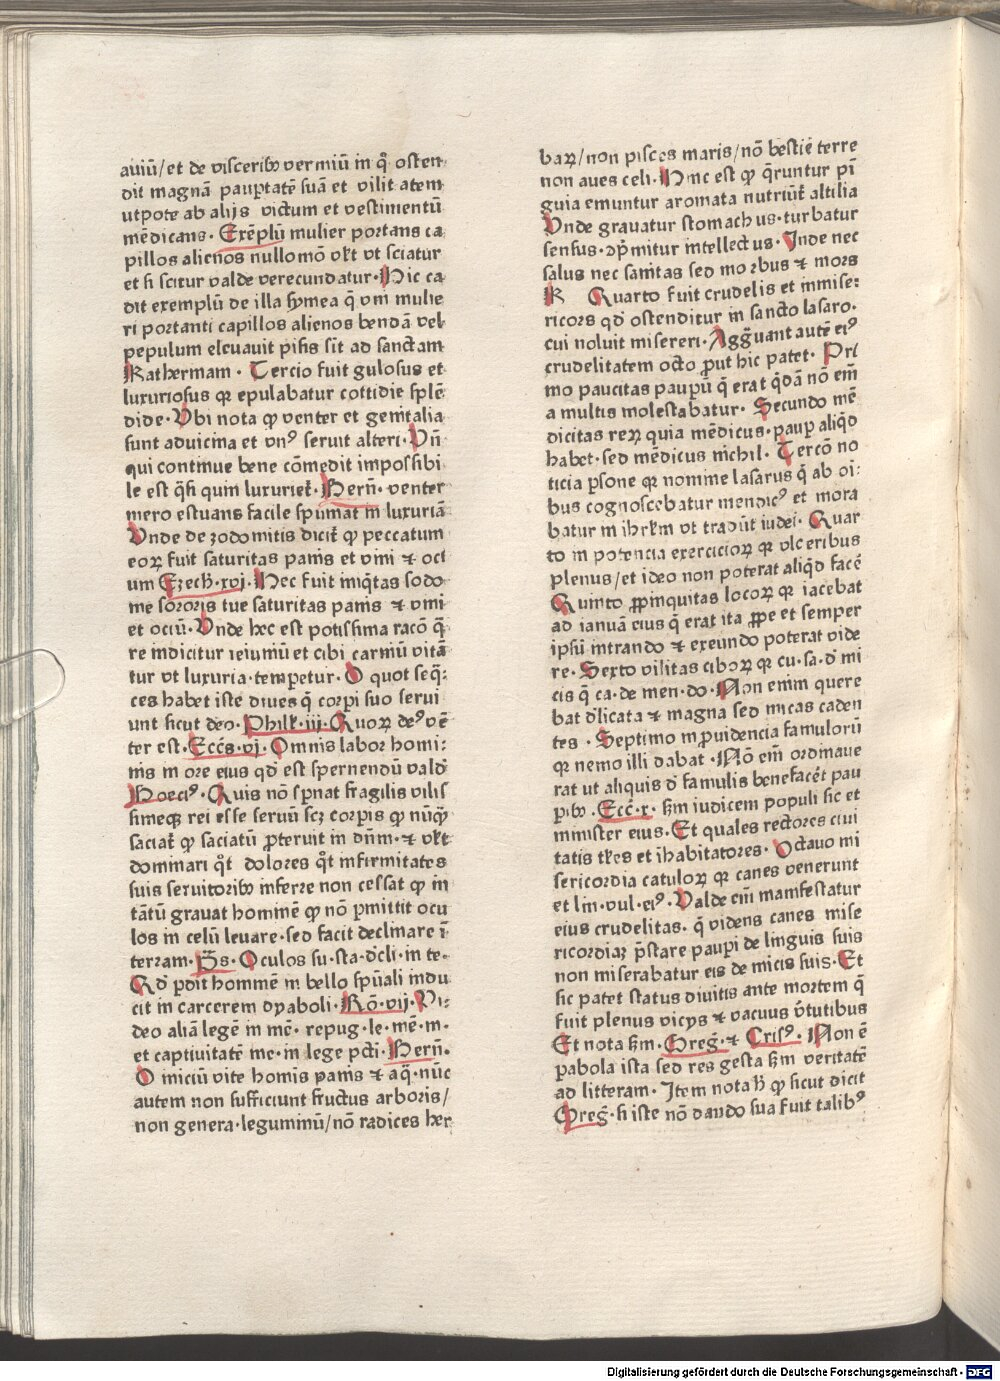 auiū/et de visceribꝰ vermiū in q̊ osten
dit magnā paupertatē suā et vilitatem
vtpote ab alijs victum et vestimentū
mēdicans. Exēplū mulier portans ca
pillos alienos nullomō vk̄t vt sciatur
et si scitur valde verecundatur. Hic ca
dit exemplū de illa symea q̄ vni mulie
ri portanti capillos alienos bendā vel
pepulum eleuauit ipsis sīt ad sanctam
Katherinam. Tercio fuit gulosus et
luxuriosus qꝛ epulabatur cottidie splē
dide. Vbi nota ꝙ venter et genitalia
sunt aduicina et vnꝰ seruit alteri. Vn̄
qui continue bene cōmedit impossibi
le est q̄si quin luxuriet̄. Bern̄. venter
mero estuans facile spumat in luxuriā
Vnde de zodomitis dicit̄ ꝙ peccatum
eoꝝ fuit saturitas panis et vini ⁊ oci
um Ezech. xvj. Hec fuit iniq̄tas sodo
me sororis tue saturitas panis ⁊ vini
et ociū. Vnde hec est potissima racō q̄
re indicitur ieiuniū et cibi carniū vitā
tur vt luxuria temperetur. O quot seq̄
ces habet iste diues q̄ corpi suo serui
unt sicut deo. Philip̄. iij. Quoꝝ deꝰ vē
ter est. Eccēs. vj. Omnis labor homi
nis in ore eius qd̄ est spernendū valde
Boeciꝰ. Quis nō spnat fragilis vilis
simeqꝫ rei esse seruū scꝫ corpis ꝙ nūq̄
saciat̄ ꝙ saciatū pteruit in dn̄m. ⁊ vk̄t
dominari q̊t dolores q̊t infirmitates
suis seruitoribꝰ inferre non cessat ꝙ in
tātū grauat hominē ꝙ nō pmittit ocu
los in celū leuare. sed facit declinare ī
terram. Ps̄. Oculos su. sta. dcli. in te.
Qd̄ pdit hominē in bello spūali indu
cit in carcerem dyaboli. Rō. vij. Vi
deo aliā legē in mē. repug. le. mē. m.
et captiuitatē me. in lege pcti. Bern̄.
O miciū vite hominis panis ⁊ aq̄. nūc
autem non sufficiunt fructus arboris/
non genera. leguminū/nō radices her
baꝝ/non pisces maris/nō bestiē terre
non aues celi. Hinc est ꝙ q̄runtur pi
guia emuntur aromata nutriūt̄ altilia
Vnde grauatur stomachus. turbatur
sensus. opp̄mitur intellectus. Inde nec
salus nec sanitas sed morbus ⁊ mors
K Quarto fuit crudelis et inmise
ricors qd̄ ostenditur in sancto lasaro.
cui noluit misereri. Aggrauant autē eiꝰ
crudelitatem octo put hic patet. Pri
mo paucitas paupū q̄ erat q̄dā nō em̄
a multis molestabatur. Secundo mē
dicitas reꝝ quia mēdicus. paup aliqd̄
habet. sed mēdicus nichil. Tercō no
ticia psone qꝛ nomine lasarus q̄ ab oi
bus cognoscebatur mendicꝰ et mora
batur in ihrl̄m vt tradūt iudei. Quar
to in potencia exercicioꝝ qꝛ vlceribus
plenus/et ideo non poterat aliqd̄ facē
Quinto ppinquitas locoꝝ qꝛ iacebat
ad ianuā eius q̄ erat ita ppe et semper
ipsū intrando ⁊ exeundo poterat vide
re. Sexto vilitas ciboꝝ qꝛ cu. sa. d̄ mi
cis q̄ ca. de men. do. Non enim quere
bat delicata ⁊ magna sed micas caden
tes. Septimo inpuidencia famuloꝝ
qꝛ nemo illi dabat. Nō em̄ ordinaue
rat ut aliquis d̄ famulis benefacēt pau
pibꝰ. Eccī. x. Sm̄ iudicem populi sic et
minister eius. Et quales rectores ciui
tatis tl̄es et ihabitatores. Octauo mi
sericordia catuloꝝ qꝛ canes venerunt
et lin. vul. eiꝰ. Valde em̄ manifestatur
eius crudelitas. q̄ videns canes mise
ricordiaꝫ p̄stare paupi de linguis suis
non miserabatur eis de micis suis. Et
sic patet status diuitis ante mortem q̄
fuit plenus vicijs ⁊ vacuus v̄tutibus
Et nota sm̄. Greḡ. ⁊ Crisꝰ. Non ē
pabola ista sed res gesta sm̄ veritatē
ad litteram. Item nota h̄ ꝙ sicut dicit
Greḡ. si iste nō dando sua fuit talibꝰ
Digitalisierung gefördert durch die Deutsche Forschungsgemeinschaft - DFG